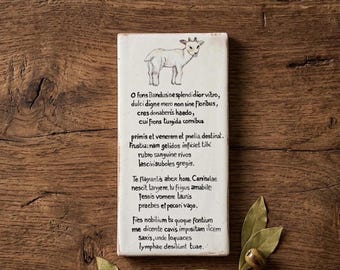 O fons Bandusiae splendidior vitro,
dulci digne mero non sine floribus,
cras donaberis haedo,
cui frons turgida cornibus
primis et venerem et proelia destinat.
Frustra: nam gelidos inficiet tibi
rubro sanguine rivos
lascivi suboles gregis.
Te flagrantis atrox hora Caniculae
nescit tangere, tu frigus amabile
fessis vomere tauris
praebes et pecori vago.
Fies nobilium tu quoque fontium
me dicente cavis impositam ilicem
saxis, unde loquaces
lymphae desiliunt tuae.